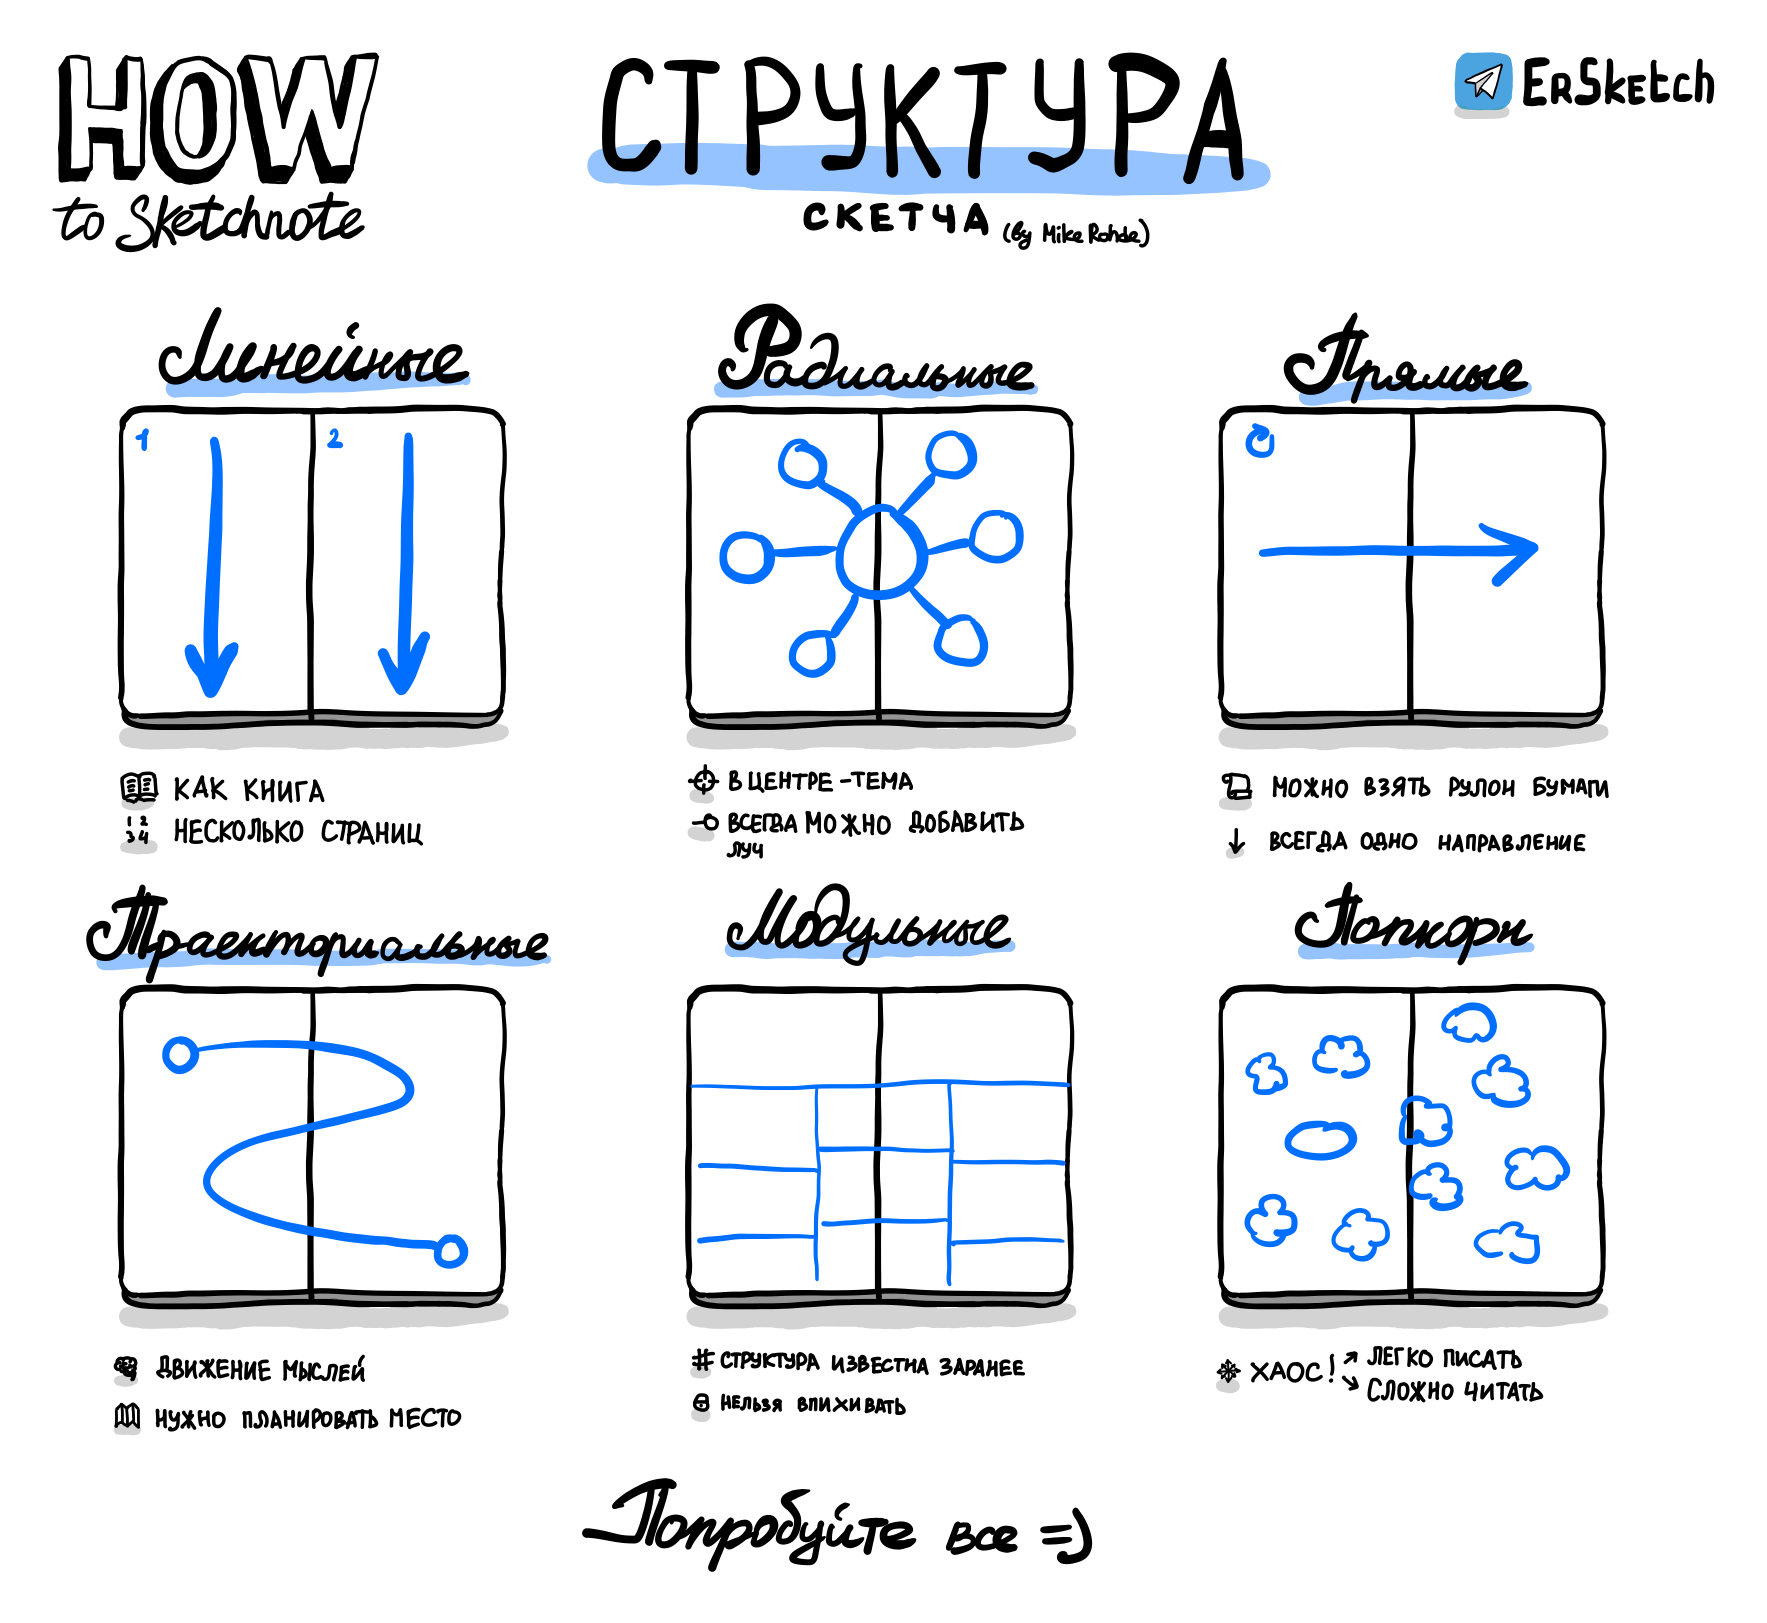 HOW
to Sketchnote
СТРУКТУРА
СКЕТЧА (by Mike Rohde)
ErSketch
Линейные
1
2
КАК КНИГА
1 2
3 4
НЕСКОЛЬКО СТРАНИЦ
Радиальные
В ЦЕНТРЕ - ТЕМА
ВСЕГДА МОЖНО ДОБАВИТЬ
ЛУЧ
Прямые
МОЖНО ВЗЯТЬ РУЛОН БУМАГИ
ВСЕГДА ОДНО НАПРАВЛЕНИЕ
Траекториальные
ДВИЖЕНИЕ МЫСЛЕЙ
НУЖНО ПЛАНИРОВАТЬ МЕСТО
Модульные
# СТРУКТУРА ИЗВЕСТНА ЗАРАНЕЕ
НЕЛЬЗЯ ВПИХИВАТЬ
Попкорн
ХАОС!
ЛЕГКО ПИСАТЬ
СЛОЖНО ЧИТАТЬ
Попробуйте все =)